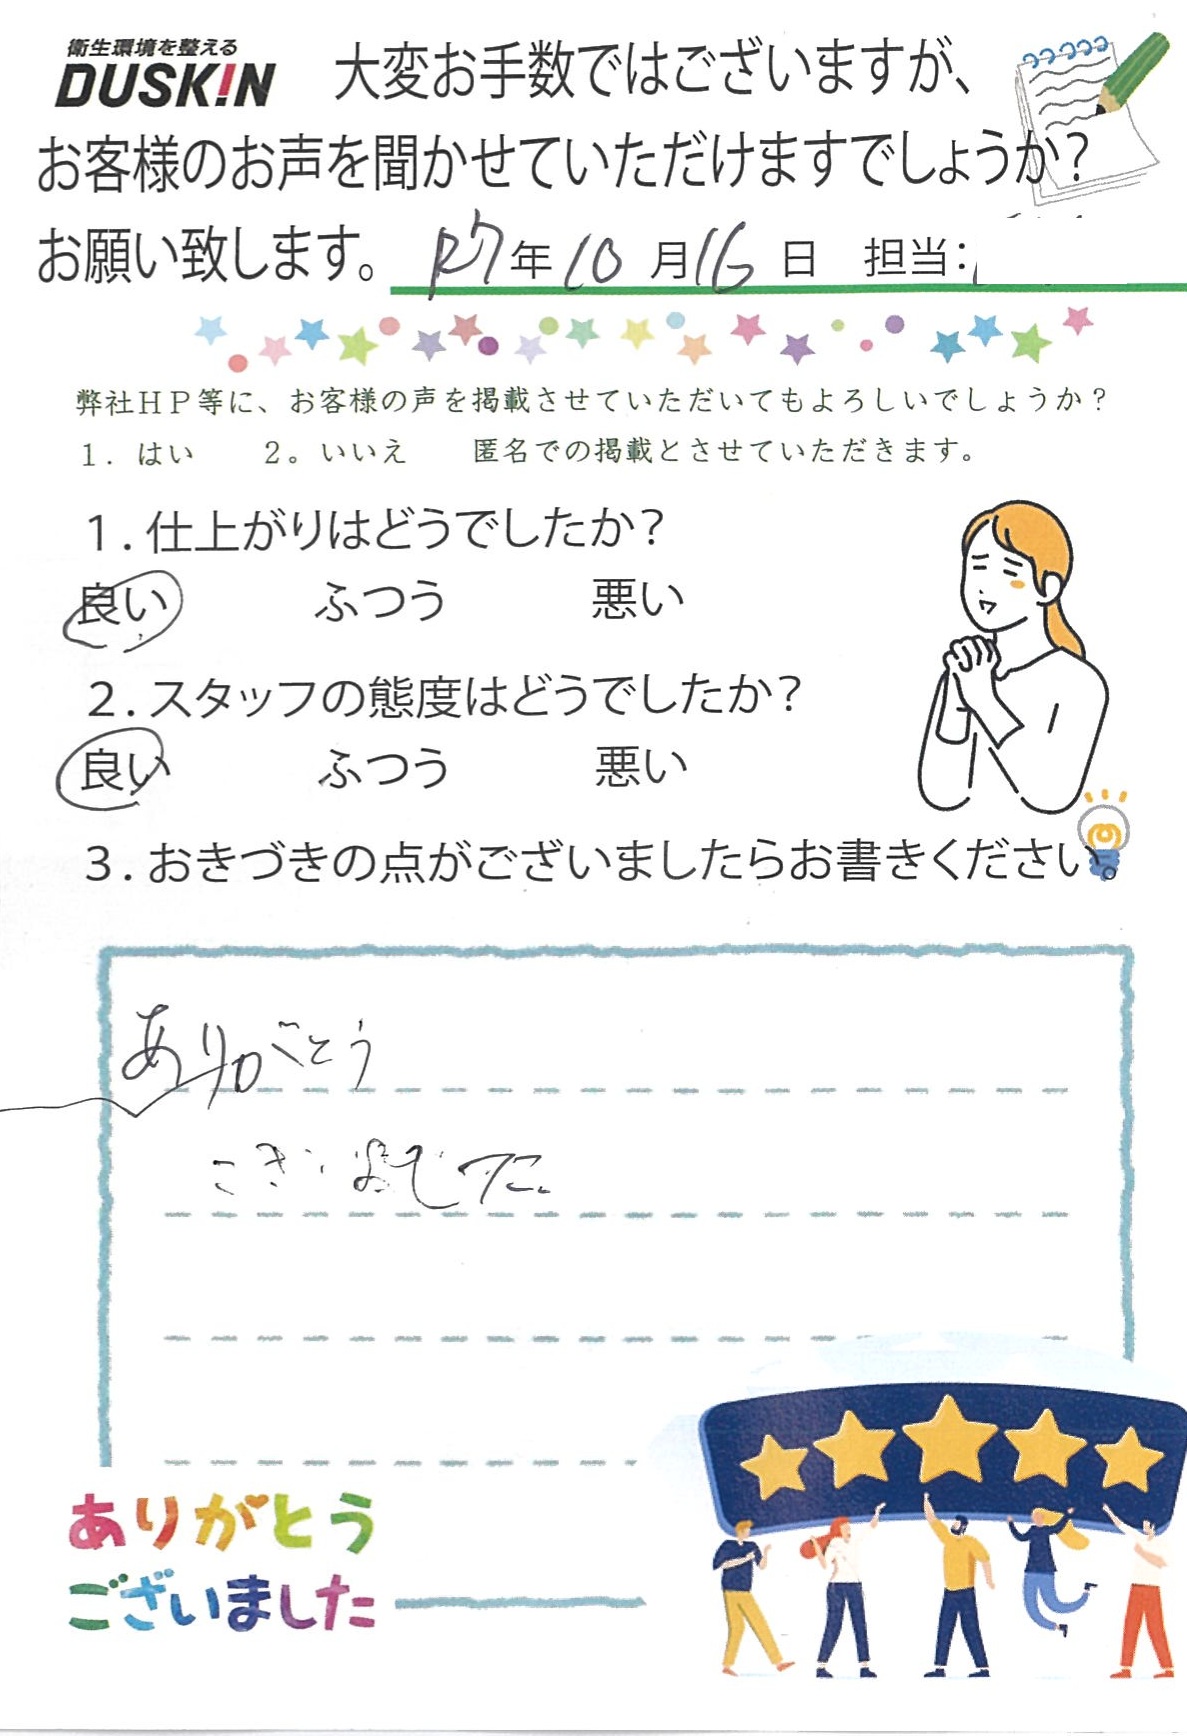 衛生環境を整える
DUSKIN 大変お手数ではございますが、
お客様のお声を聞かせていただけますでしょうか?
お願い致します。 R7年10月16日 担当:
弊社HP等に、お客様の声を掲載させていただいてもよろしいでしょうか?
1. はい 2。いいえ 匿名での掲載とさせていただきます。
1. 仕上がりはどうでしたか?
良い ふつう 悪い
2. スタッフの態度はどうでしたか?
良い ふつう 悪い
3. おきづきの点がございましたらお書きください。
ありがとう
ございました
ありがとう
ございました